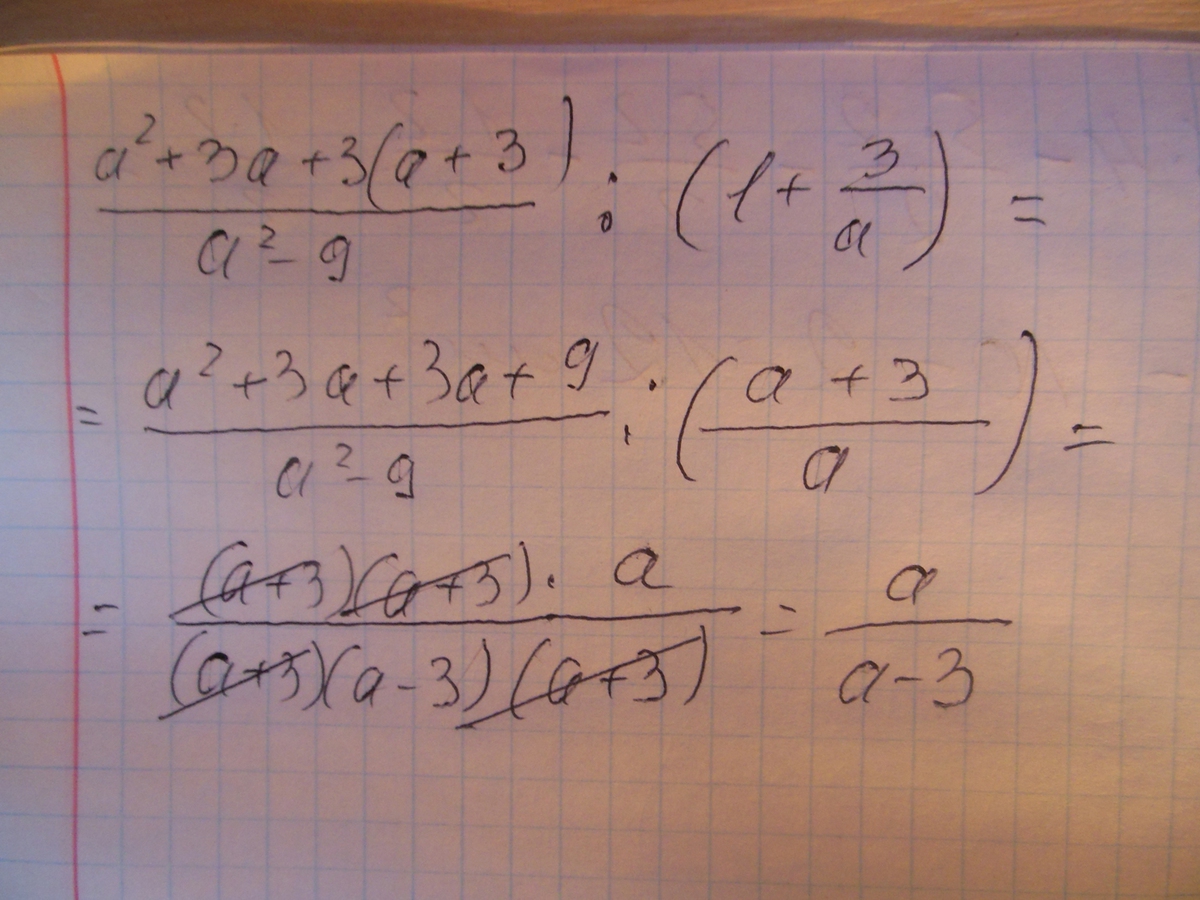 (a² + 3a + 3(a + 3)) / (a² - 9) : (1 + 3/a) =
= (a² + 3a + 3a + 9) / (a² - 9) : ((a + 3) / a) =
= ((a+3)(a+3) · a) / ((a+3)(a-3)(a+3)) = a / (a-3)